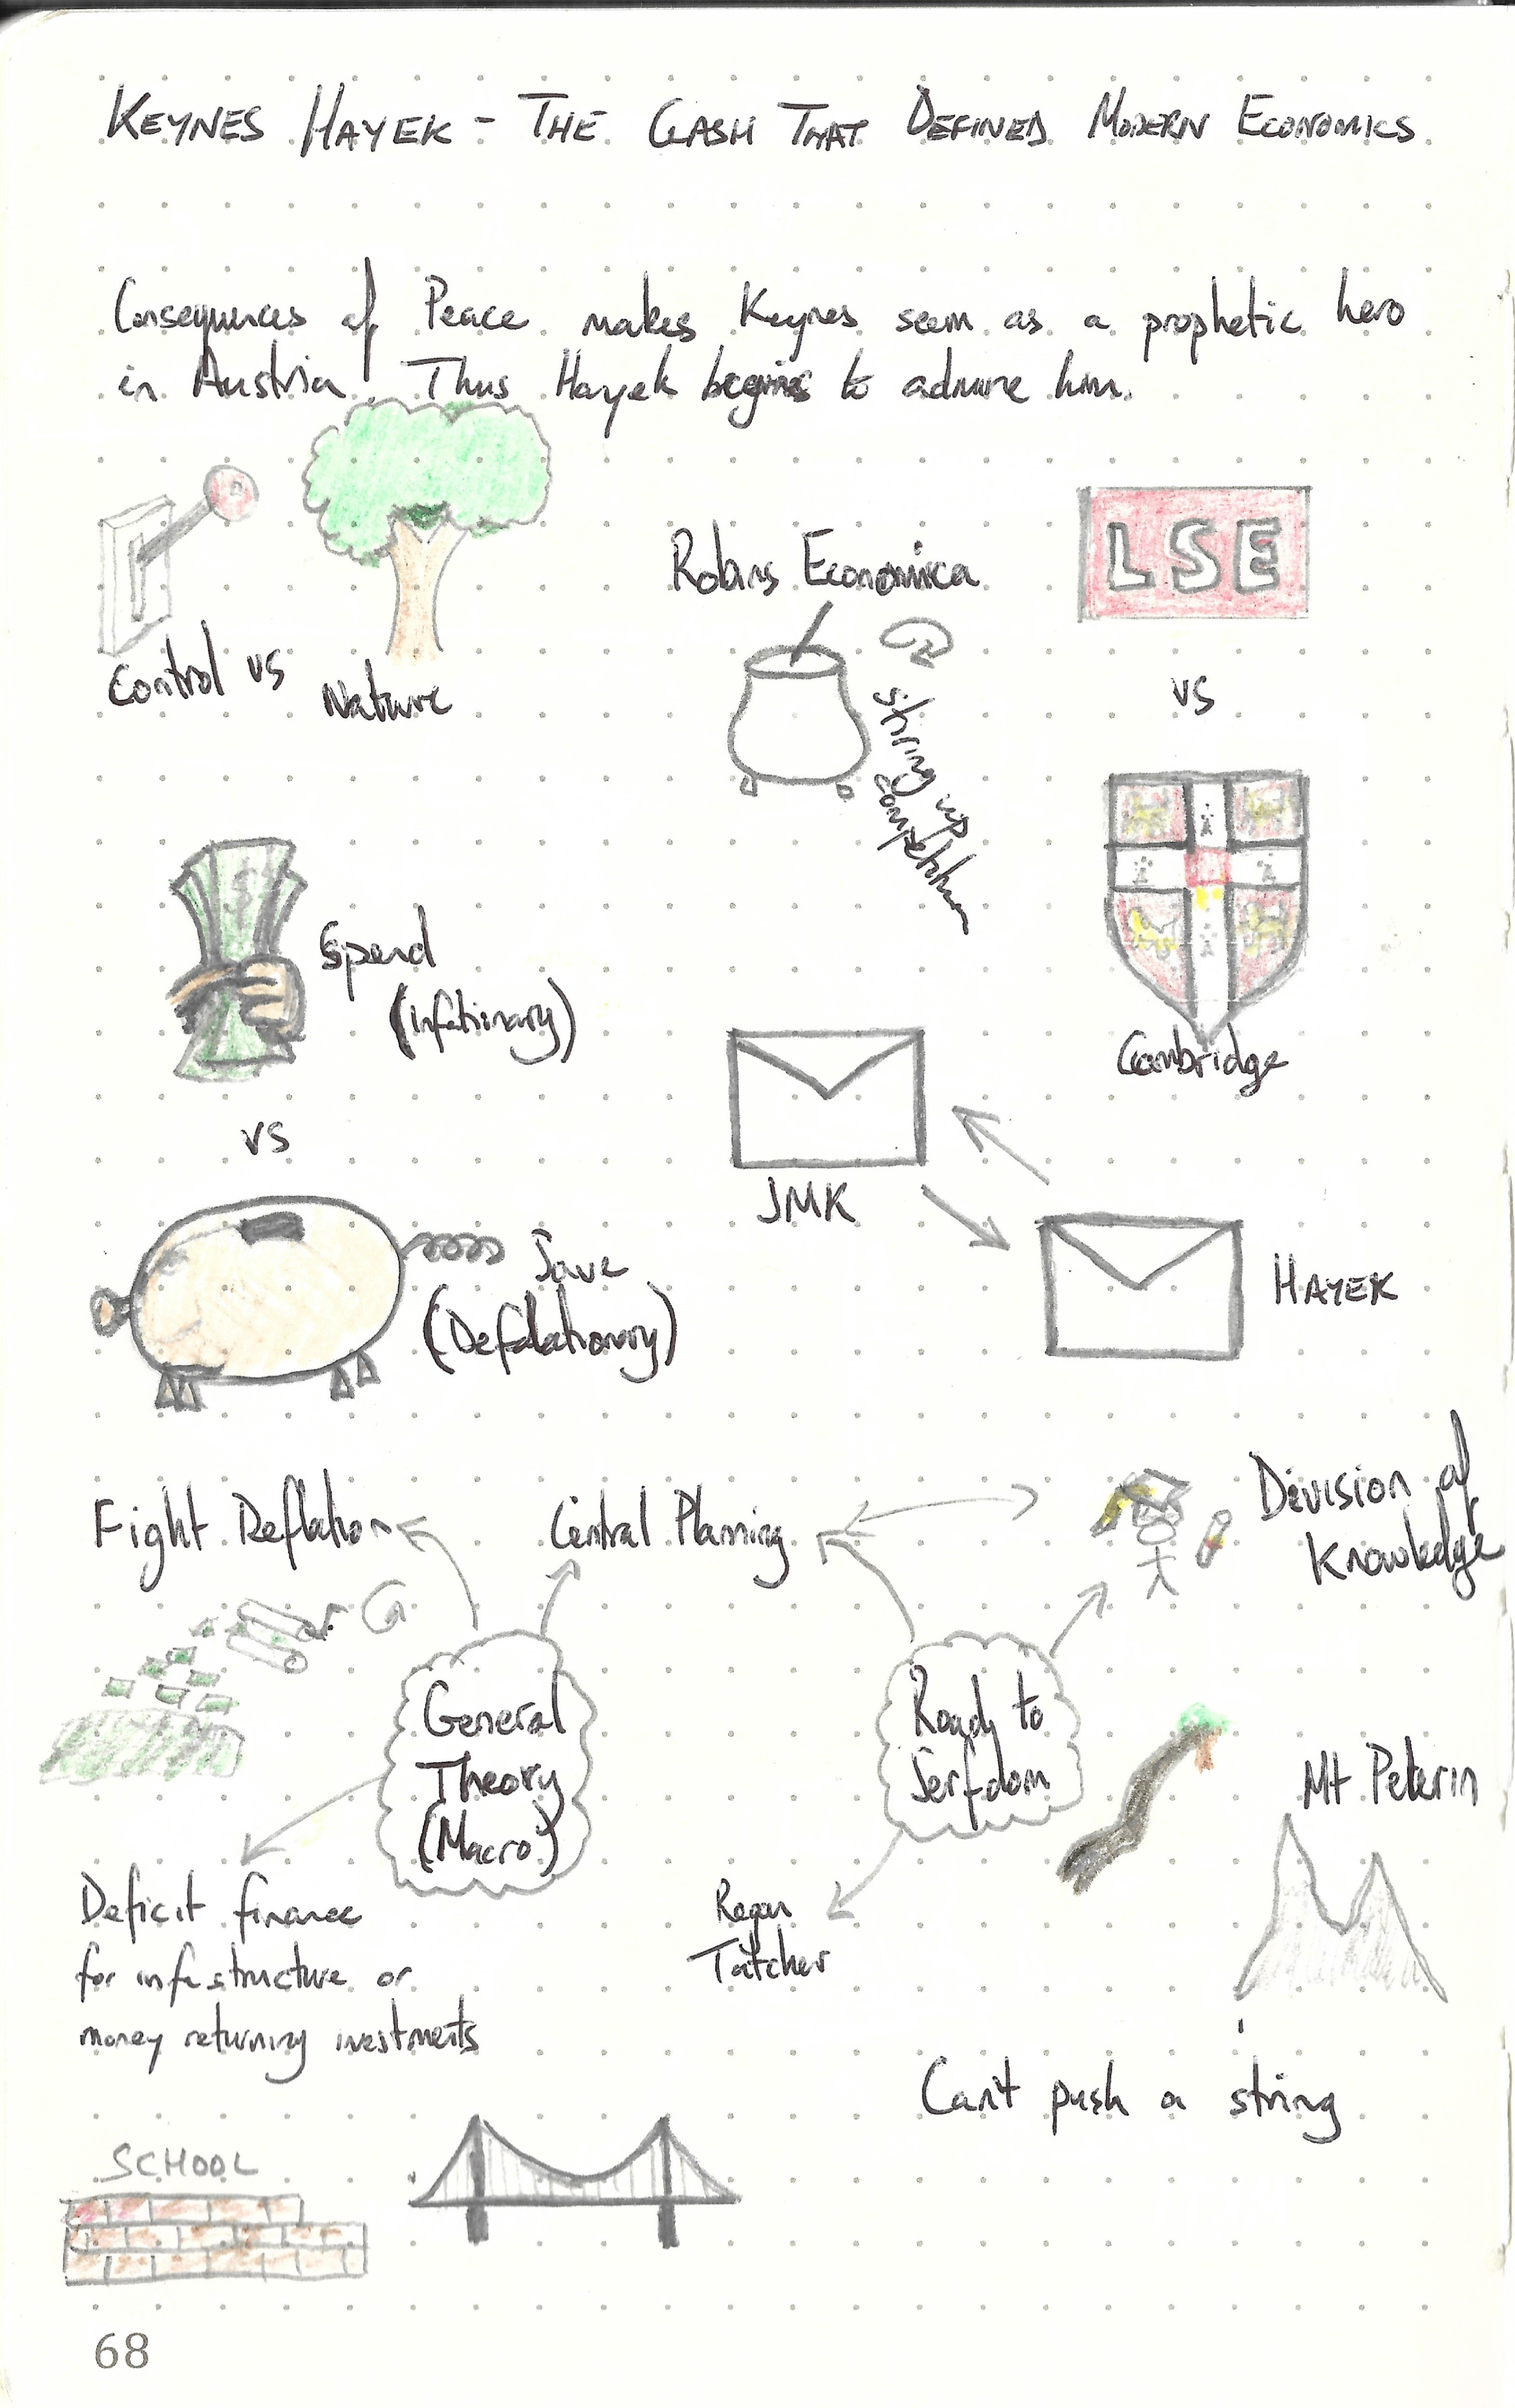 KEYNES HAYEK - THE CLASH THAT DEFINED MODERN ECONOMICS
Consequences of Peace makes Keynes seem as a prophetic hero
in Austria. Thus Hayek begins to admire him.
Control vs
Nature
Robins Economica
Stiring up
competition
LSE
vs
Cambridge
$
Spend
(Infationary)
vs
Save
(Defalationary)
JMK
HAYEK
Fight Deflation
Central Planning
Division of
Knowledge
General
Theory
(Macro)
Road to
Serfdom
Mt Pelerin
Deficit finance
for infastructure or
money returning investments
Regan
Tatcher
Can't push a string
SCHOOL
68